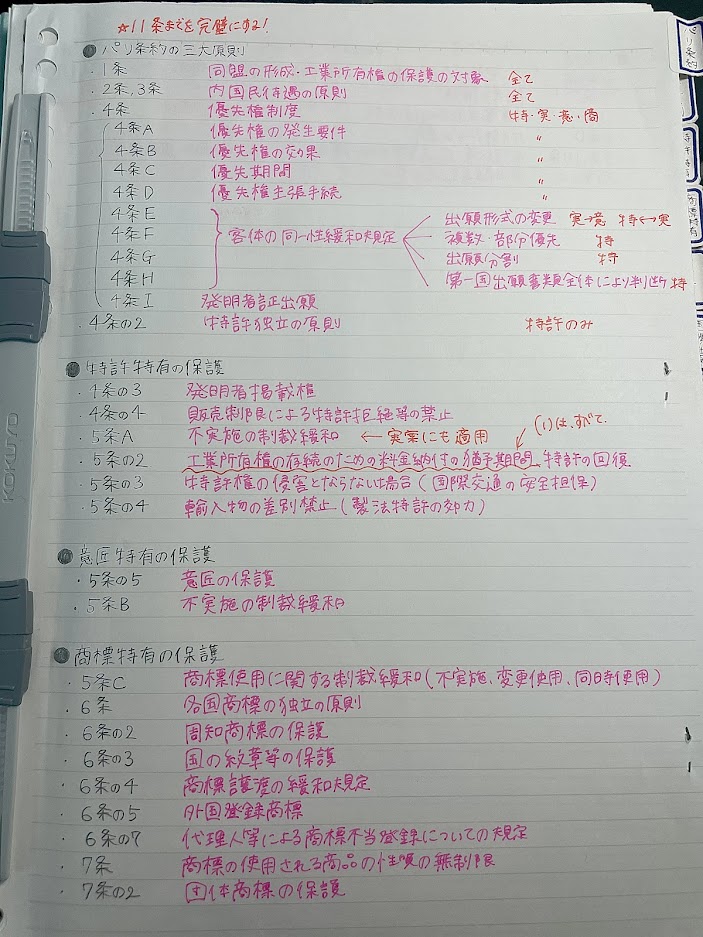 ☆11条までを完璧にする!
● パリ条約の三大原則
・1条 同盟の形成・工業所有権の保護の対象 全て
・2条,3条 内国民待遇の原則 全て
・4条 優先権制度 特・実・意・商
4条A 優先権の発生要件 〃
4条B 優先権の効果 〃
4条C 優先期間 〃
4条D 優先権主張手続 〃
4条E 出願形式の変更 実→意 特↔実
4条F 客体の同一性緩和規定 複数・部分優先 特
4条G 出願分割 特
4条H 第一国出願書類全体により判断 特
4条I 発明者証出願
・4条の2 特許独立の原則 特許のみ
● 特許特有の保護
・4条の3 発明者掲載権
・4条の4 販売制限による特許拒絶等の禁止
・5条A 不実施の制裁緩和 ← 実案にも適用 (1)は、すべて.
・5条の2 工業所有権の存続のための料金納付の猶予期間、特許の回復
・5条の3 特許権の侵害とならない場合(国際交通の安全担保)
・5条の4 輸入物の差別禁止(製法特許の効力)
● 意匠特有の保護
・5条の5 意匠の保護
・5条B 不実施の制裁緩和
● 商標特有の保護
・5条C 商標使用に関する制裁緩和(不実施、変更使用、同時使用)
・6条 各国商標の独立の原則
・6条の2 周知商標の保護
・6条の3 国の紋章等の保護
・6条の4 商標譲渡の緩和規定
・6条の5 外国登録商標
・6条の7 代理人等による商標不当登録についての規定
・7条 商標の使用される商品の性質の無制限
・7条の2 団体商標の保護
KOKUYO
パリ条約
特許特有
商標特有